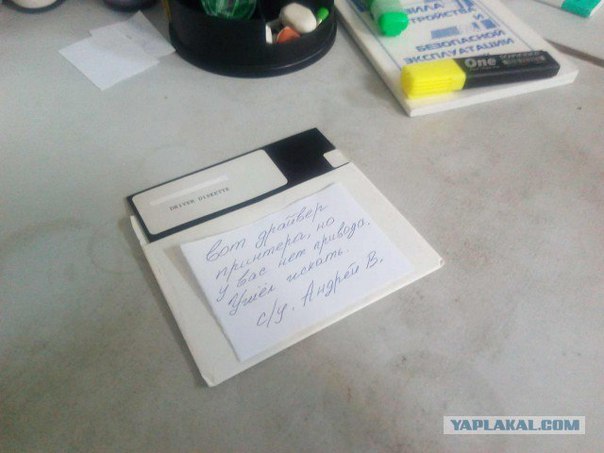 ВИЛА
ТРОЙСТВА
И
БЕЗОПАСНОЙ
ЭКСПЛУАТАЦИИ
One
DRIVER DISKETTE
Вот драйвер
принтеры, но
у вас нет привода.
Ушёл искать.
с/у. Андрей В.
YAPLAKAL.COM